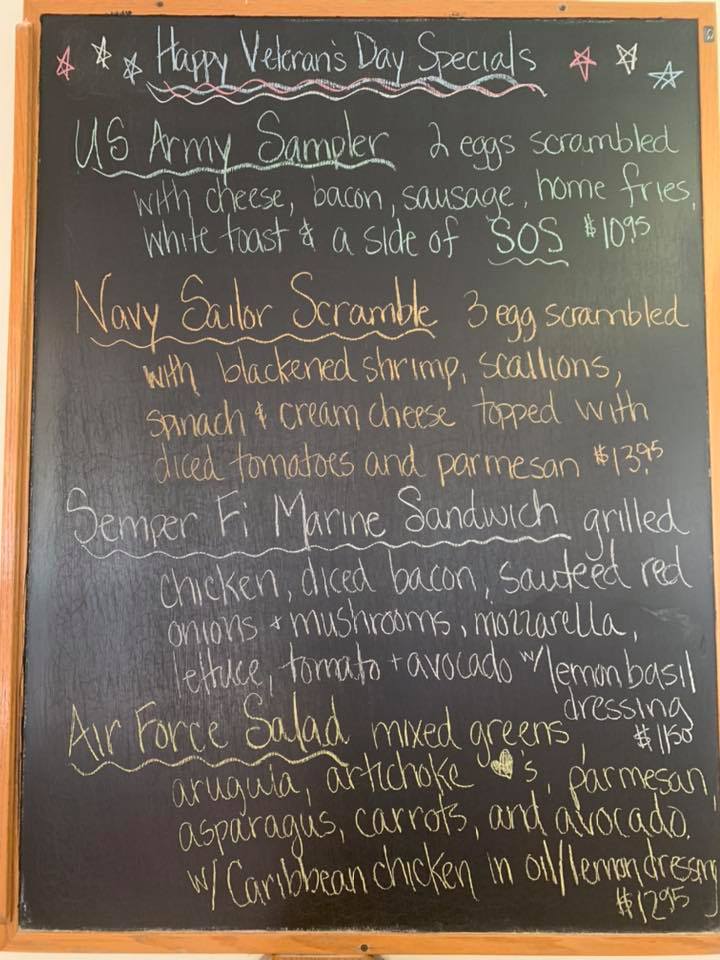 Happy Veteran's Day Specials
US Army Sampler 2 eggs scrambled
with cheese, bacon, sausage, home fries,
white toast & a side of SOS $10.95
Navy Sailor Scramble 3 egg scrambled
with blackened shrimp, scallions,
spinach & cream cheese topped with
diced tomatoes and parmesan $13.95
Semper Fi Marine Sandwich grilled
chicken, diced bacon, sauteed red
onions + mushrooms, mozzarella,
lettuce, tomato + avocado w/ lemon basil
dressing
$11.50
Air Force Salad mixed greens,
arugula, artichoke ♥'s, parmesan,
asparagus, carrots, and avocado.
w/ Caribbean chicken in oil/lemon dressing
$12.95